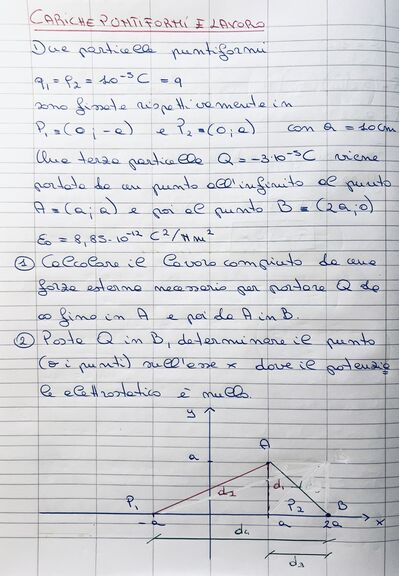 CARICHE PUNTIFORMI E LAVORO
Due particelle puntiformi
q₁ = q₂ = 10⁻⁵ C = q
sono fissate rispettivamente in
P₁ = (0; -a) e P₂ = (0; a) con a = 10 cm
Una terza particella Q = -3·10⁻⁵ C viene
portata da un punto all'infinito al punto
A = (a; a) e poi al punto B = (2a; 0)
ε₀ = 8,85·10⁻¹² C²/Nm²
① Calcolare il lavoro compiuto da una
forza esterna necessario per portare Q da
∞ fino in A e poi da A in B.
② Posta Q in B, determinare il punto
(o i punti) sull'asse x dove il potenzia
le elettrostatico è nullo.
y
A
a
d₂
d₁
P₁
P₂
B
-a
a
2a
x
d₄
d₃